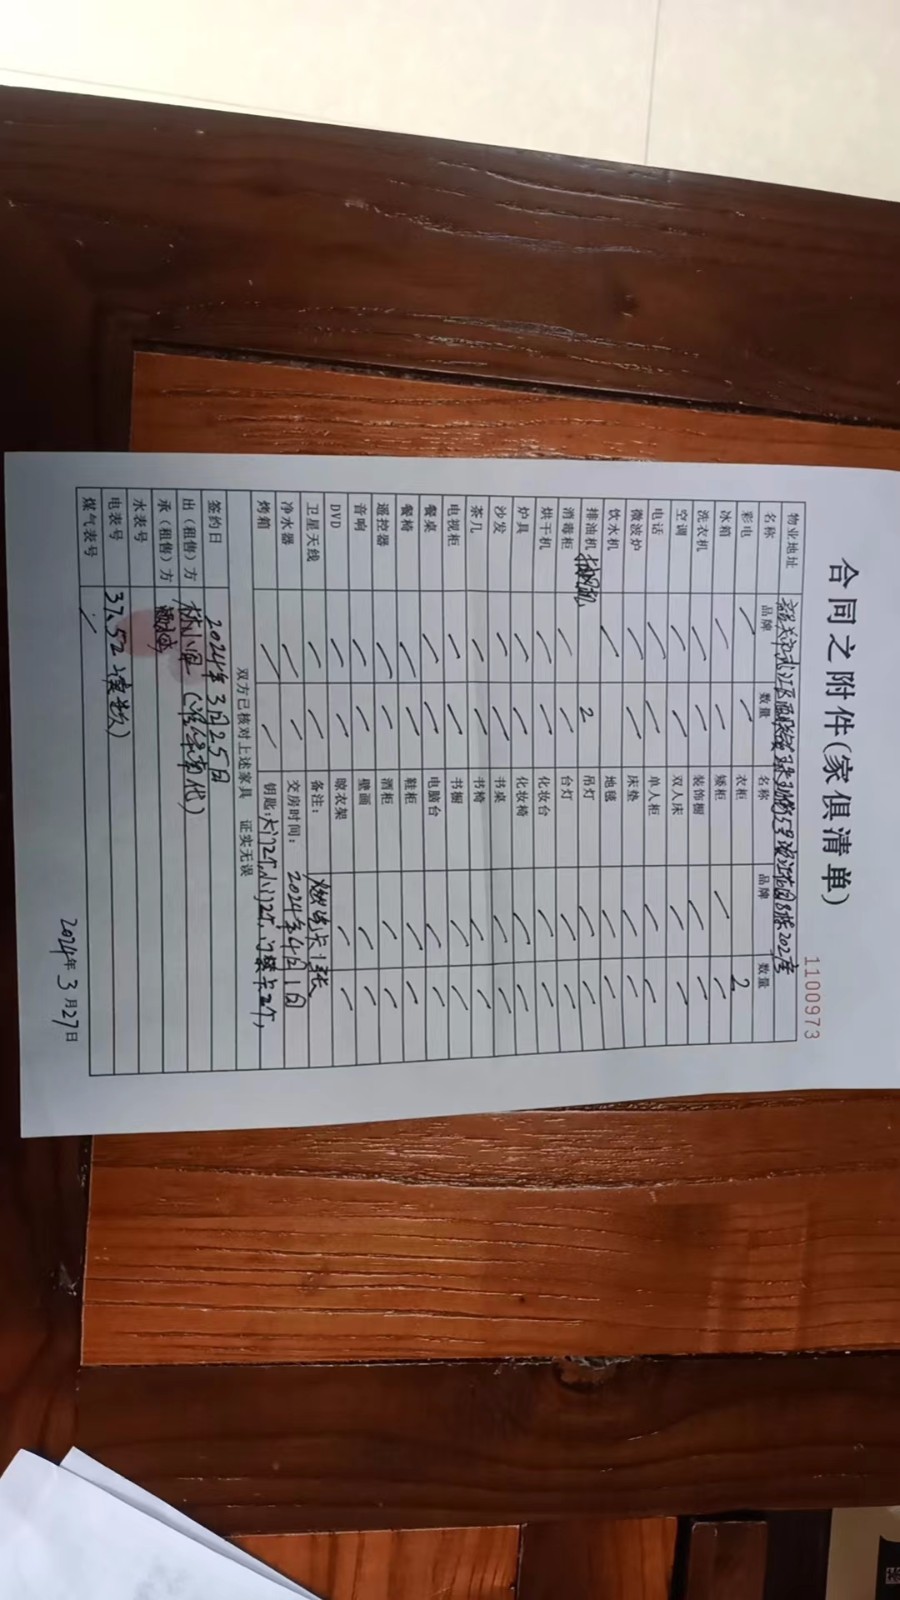 合同之附件(家俱清单)
1100973
物业地址 韶关市武江区西联镇 202房
名称 品牌 数量 名称 品牌 数量
彩电 / / 衣柜 2
冰箱 / / 矮柜 / /
洗衣机 / / 装饰橱 / /
空调 / / 双人床 / /
电话 / / 单人柜 / /
微波炉 / / 床垫 / /
饮水机 / 地毯 / /
排油机 抽风机 2 吊灯 / /
消毒柜 / / 台灯 / /
烘干机 / / 化妆台 / /
炉具 / / 化妆椅 / /
沙发 / / 书桌 / /
茶几 / / 书椅 / /
电视柜 / / 书橱 / /
餐桌 / / 电脑台 / /
餐椅 / / 鞋柜 / /
遥控器 / / 酒柜 / /
音响 / / 壁画 / /
DVD / / 晾衣架 / /
卫星天线 / / 备注: 燃气卡1张
净水器 / / 交房时间: 2024年4月1日
烤箱 / / 钥匙:大门2个,小门2个,门禁卡2个,
双方已核对上述家具 证实无误
签约日 2024年3月25日
出(租售)方
承(租售)方
水表号
电表号 37.52(读数)
煤气表号 /
2024年3月27日